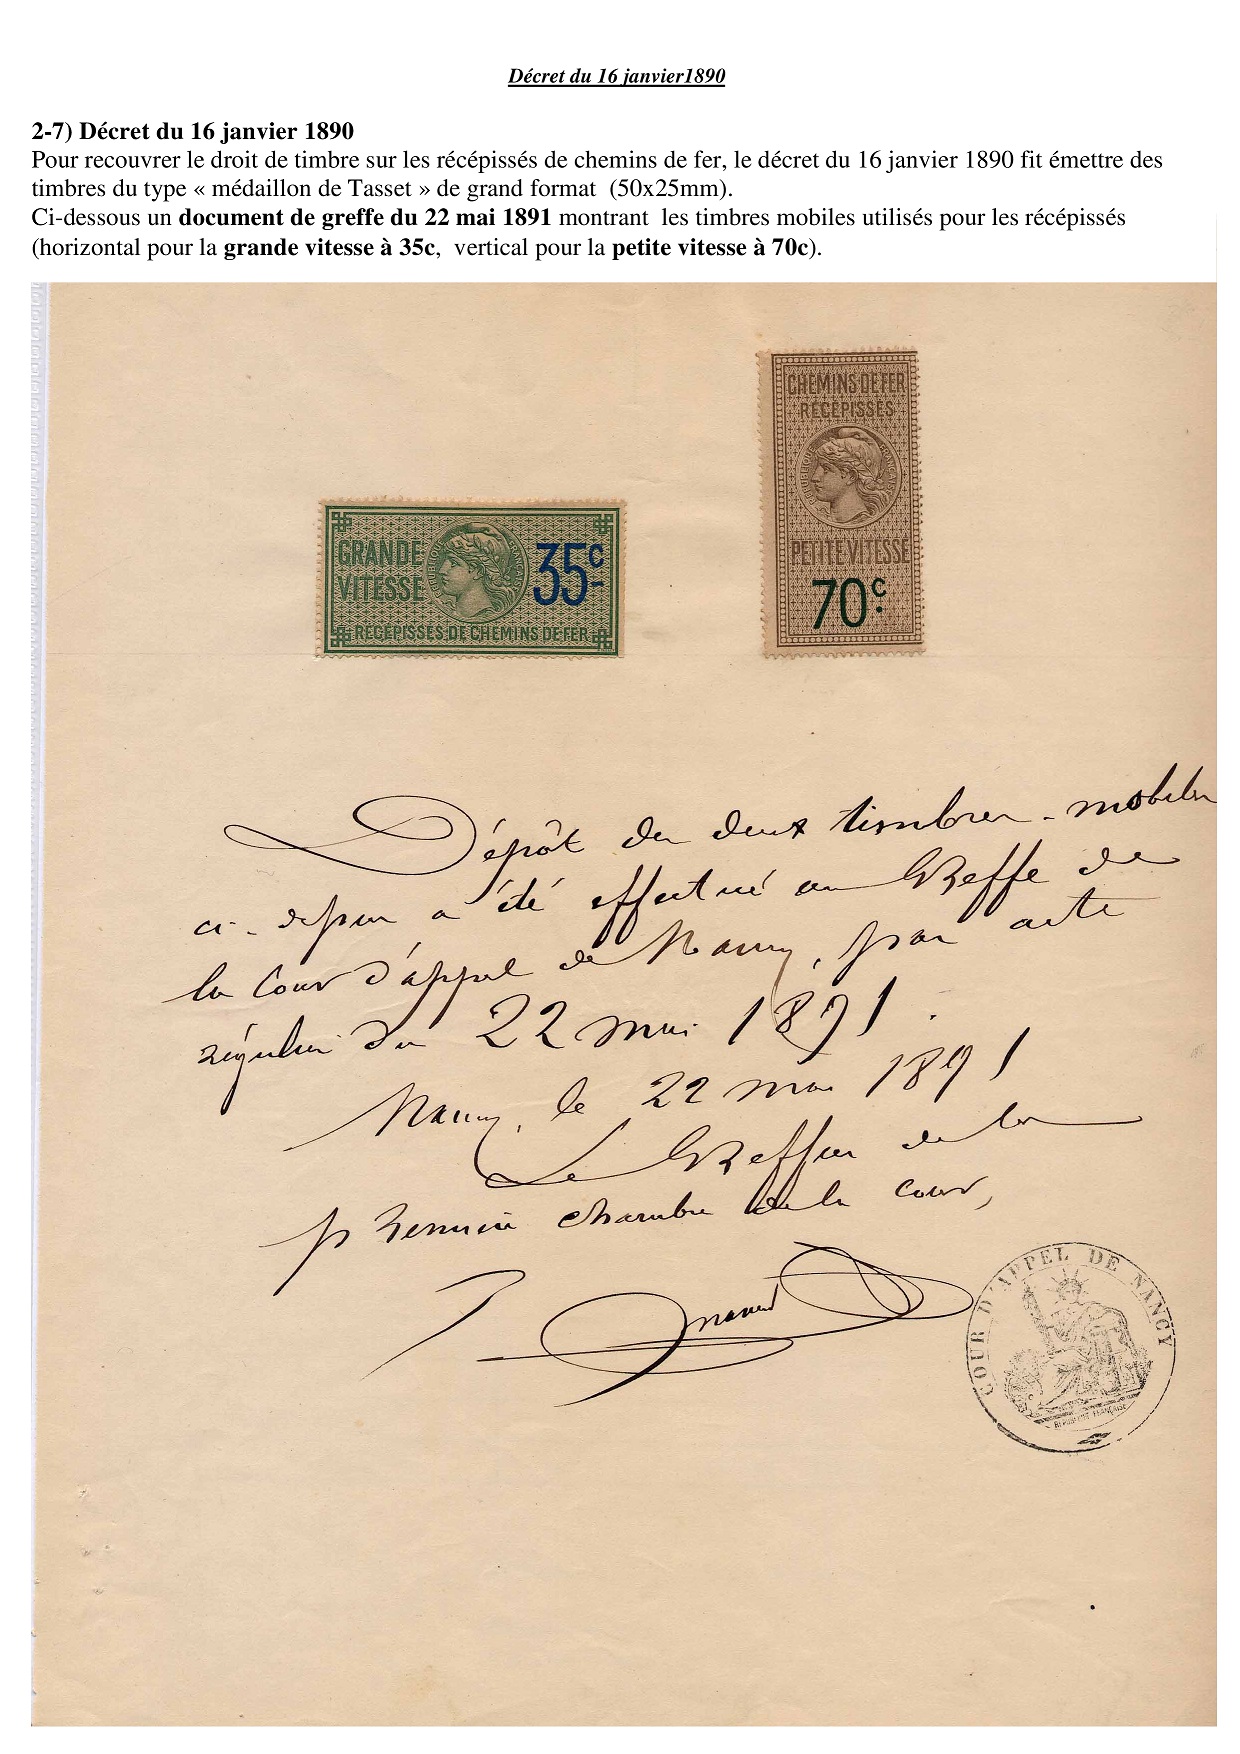 Décret du 16 janvier1890
2-7) Décret du 16 janvier 1890
Pour recouvrer le droit de timbre sur les récépissés de chemins de fer, le décret du 16 janvier 1890 fit émettre des
timbres du type « médaillon de Tasset » de grand format (50x25mm).
Ci-dessous un document de greffe du 22 mai 1891 montrant les timbres mobiles utilisés pour les récépissés
(horizontal pour la grande vitesse à 35c, vertical pour la petite vitesse à 70c).
CHEMINS DE FER
RÉCÉPISSÉS
RÉPUBLIQUE FRANÇAISE
PETITE VITESSE
70c.
GRANDE
VITESSE
RÉPUBLIQUE FRANÇAISE
35c
RÉCÉPISSÉS DE CHEMINS DE FER
Dépôt des deux timbres-mobiles
ci-dessus a été effectué au Greffe de
la Cour d'appel de Nancy, par acte
régulier du 22 mai 1891.
Nancy, le 22 mai 1891
Le Greffier de la
première chambre de la cour,
COUR D'APPEL DE NANCY
RÉPUBLIQUE FRANÇAISE